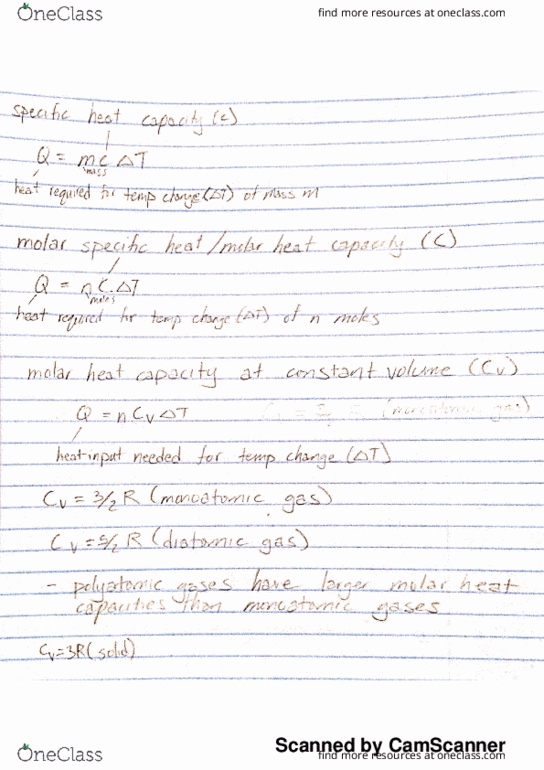 OneClass
find more resources at oneclass.com
specific heat capacity (c)
Q = mc ΔT
mass
heat required for temp change (ΔT) of mass m
molar specific heat/molar heat capacity (C)
Q = nC ΔT
moles
heat required for temp change (ΔT) of n moles
molar heat capacity at constant volume (Cv)
Q = nCvΔT
(monoatomic gas)
heat input needed for temp change (ΔT)
Cv = 3/2 R (monoatomic gas)
Cv = 5/2 R (diatomic gas)
- polyatomic gases have larger molar heat
capacities than monoatomic gases
Cv=3R (solid)
Scanned by CamScanner
OneClass
find more resources at oneclass.com